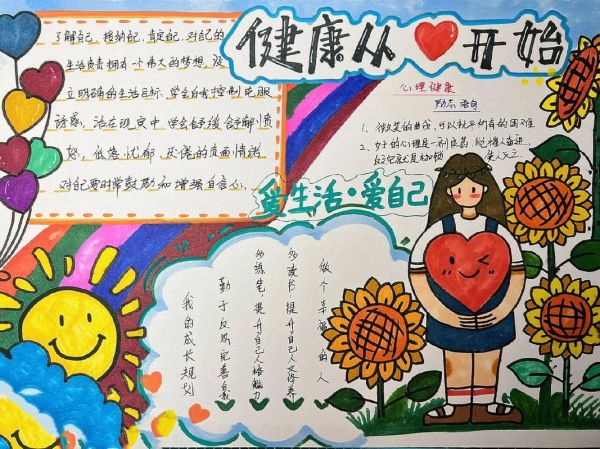 健康从❤开始
了解自己、接纳自己、肯定自己、对自己的
生活负责拥有一个伟大的梦想、设
立明确的生活目标、学会自我控制克服
诱惑、活在现实中、学会舒缓
怒、低落、忧郁、厌倦的负面情绪、
对自己要时常鼓励和增强自信心。
心理健康
励志语句
1、微笑的曲线,可以扶平所有的困难
2、好的心理是一剂良药
爱生活·爱自己
做个幸福的人
多读书,提升自己人文修养
多练笔,提升自己人格能力
勤于反思完善自我
我的成长规划